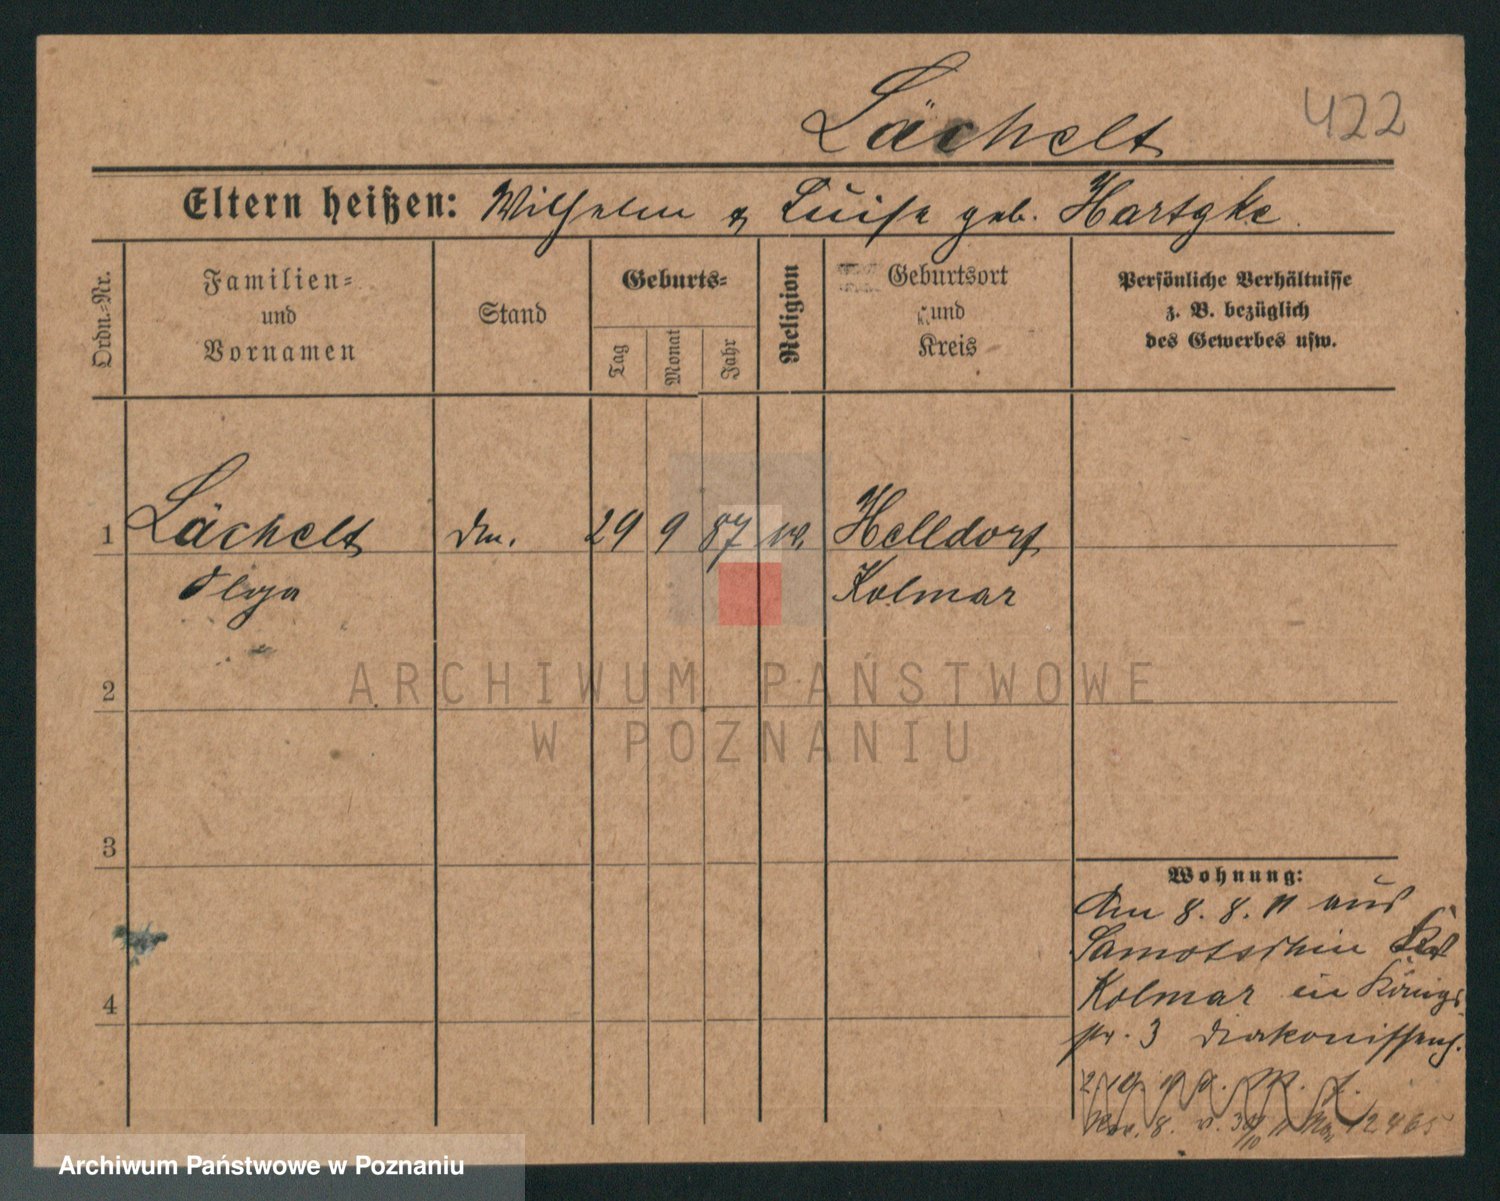 Lächelt
422
Eltern heißen: Wilhelm & Luise geb. Hartgke.
Ordn.-Nr.
Familien-
und
Vornamen
Stand
Geburts-
Tag
Monat
Jahr
Religion
Geburtsort
und
Kreis
Persönliche Verhältnisse
z. B. bezüglich
des Gewerbes usw.
1 Lächelt 29 9 87 Helldorf
Olga Kolmar
2
3
4
Wohnung:
Am 8. 8. 11 aus
Samotschin
Kolmar in Königs
str. 3 Diakonissenh.
12465
ARCHIWUM PAŃSTWOWE
W POZNANIU
Archiwum Państwowe w Poznaniu